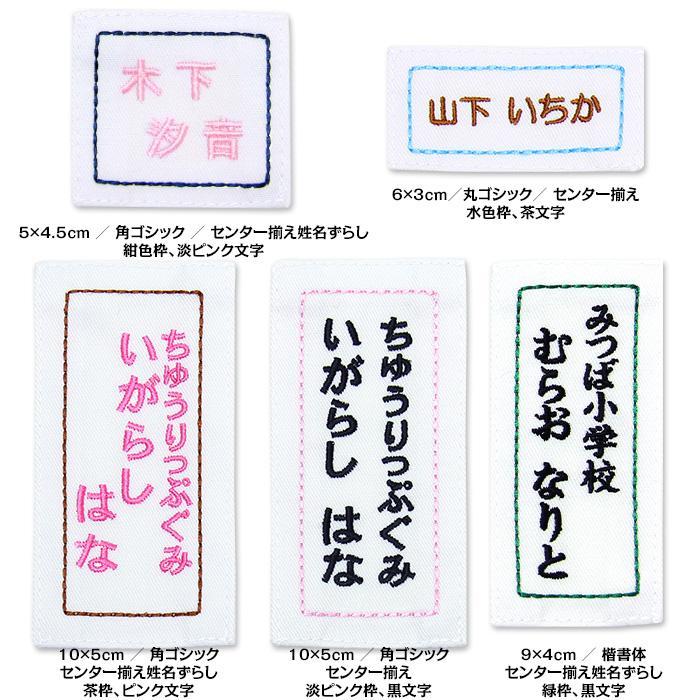 木下
汐音
5×4.5cm ／ 角ゴシック ／ センター揃え姓名ずらし
紺色枠、淡ピンク文字
山下 いちか
6×3cm／丸ゴシック／ センター揃え
水色枠、茶文字
ちゅうりっぷぐみ
いがらし
はな
10×5cm ／ 角ゴシック
センター揃え姓名ずらし
茶枠、ピンク文字
ちゅうりっぷぐみ
いがらし はな
10×5cm ／ 角ゴシック
センター揃え
淡ピンク枠、黒文字
みつば小学校
むらお なりと
9×4cm ／ 楷書体
センター揃え姓名ずらし
緑枠、黒文字